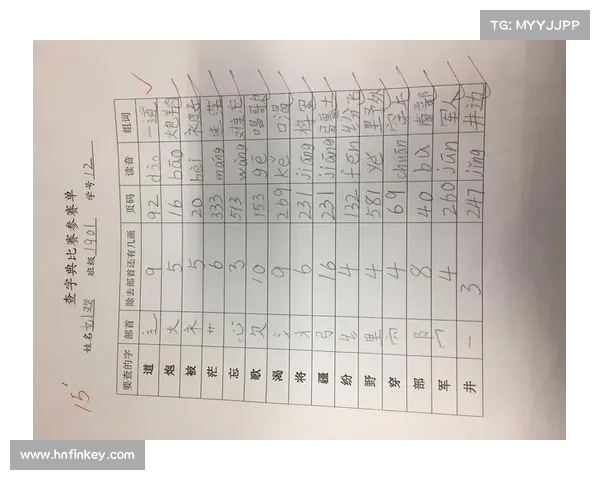 TG: MYYJJPP
查字典比赛参赛单
姓名 班级1901 学号12
15'
要查的字 部首 除去部首还有几画 页码 读音 组词
道 辶 9 92 dào 一道
炮 火 5 16 bāo
被 衤 5 20 bèi
茫 艹 6 333 máng
忘 心 3 513 wàng
歌 欠 10 153 gē 唱歌
渴 氵 9 269 kě 口渴
将 6 231 jiāng 将军
疆 弓 16 231 jiāng 疆土
纷 纟 4 132 fēn 纷飞
野 里 4 581 yě 野外
穿 穴 4 69 chuān
部 阝 8 40 bù
军 冖 4 260 jūn 军人
井 一 3 247 jǐng 井边
www.hnfinkey.com